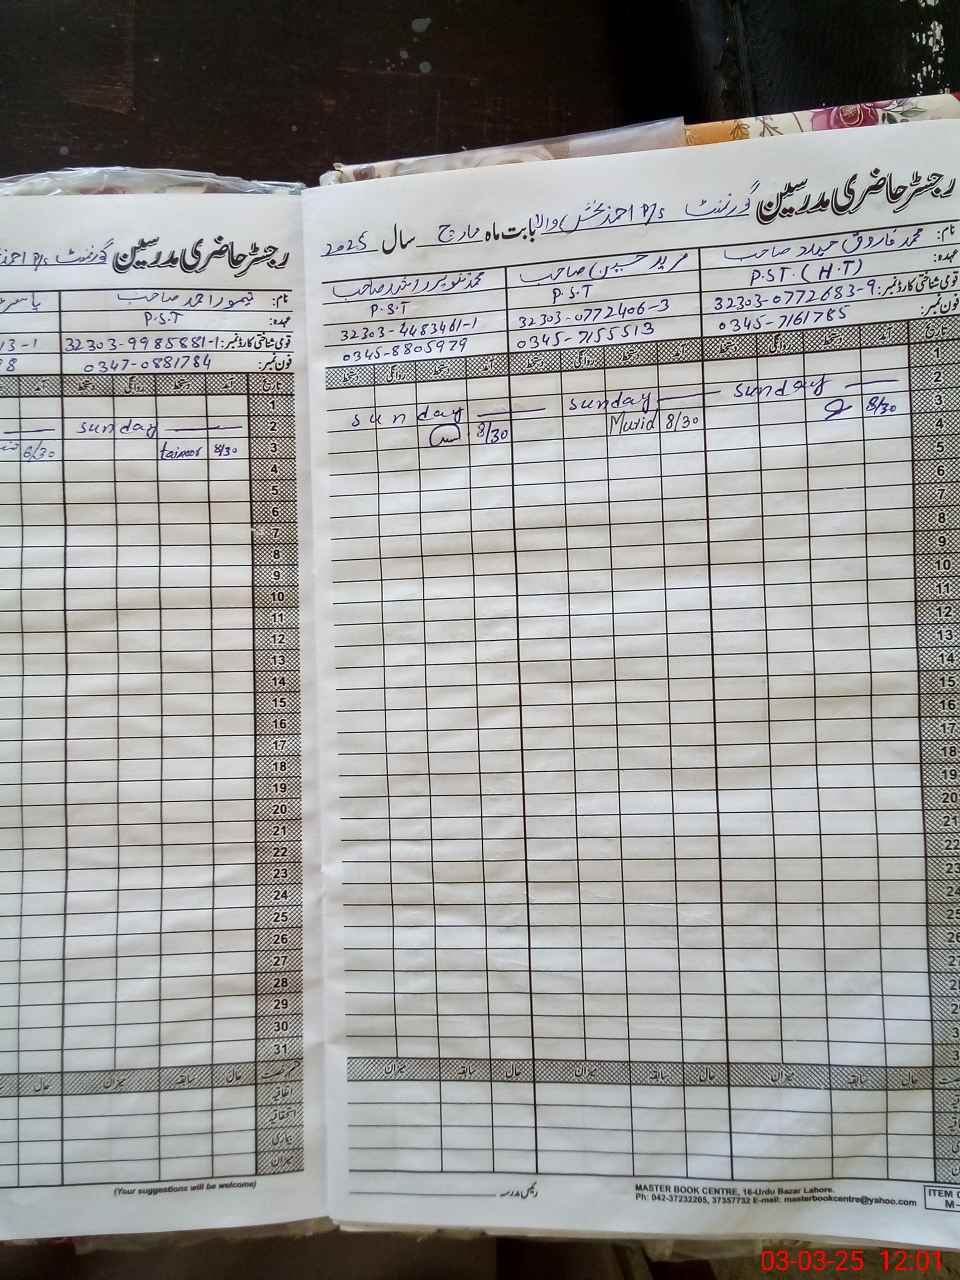 رجسٹر حاضری مدرسین گورنمنٹ P/s احمد بخش والا بابت ماہ مارچ سال 2025
نام: محمد فاروق حیدر صاحب
مرید حسین صاحب
عہدہ: P.S.T. (H.T)
P.S.T
P.S.T
قومی شناختی کارڈ نمبر: 32303-0772683-9
32303-0772406-3
32303-4483461-1
فون نمبر: 0345-7161785
0345-7155513
0345-8805979
تاریخ آمد دستخط روانگی دستخط آمد دستخط روانگی دستخط آمد دستخط روانگی دستخط
1
2 sunday sunday sunday
3 8/30 8/30 Murid 8/30
4
5
6
7
8
9
10
11
12
13
14
15
16
17
18
19
20
21
22
23
24
25
26
27
28
29
30
حال سابقہ میزان حال سابقہ میزان حال سابقہ میزان
رئیس مدرسہ
MASTER BOOK CENTRE, 16-Urdu Bazar Lahore.
Ph: 042-37232205, 37357732 E-mail: masterbookcentre@yahoo.com
ITEM
M-
رجسٹر حاضری مدرسین گورنمنٹ P/s احمد
نام: تیمور احمد صاحب
عہدہ: P.S.T
قومی شناختی کارڈ نمبر: 32303-9985881-1
13-1
فون نمبر: 0347-0881784
98
تاریخ آمد دستخط روانگی دستخط آمد دستخط
1
2 sunday
3 8/30 taimoor 8/30
4
5
6
7
8
9
10
11
12
13
14
15
16
17
18
19
20
21
22
23
24
25
26
27
28
29
30
31
قسم رخصت حال سابقہ میزان حال
اتفاقیہ
استحقاقیہ
بیماری
میزان
(Your suggestions will be welcome)
03-03-25 12:01